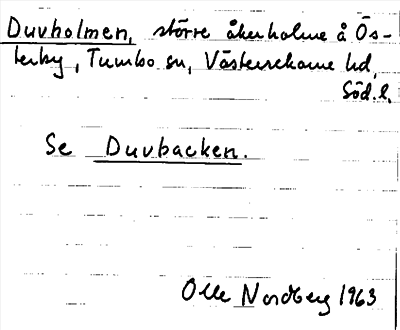 Duvholmen, större åkerholme å Ös-
terby, Tumbo sn, Västerrekarne hd,
Söd. l.
Se Duvbacken.
Olle Nordberg 1963